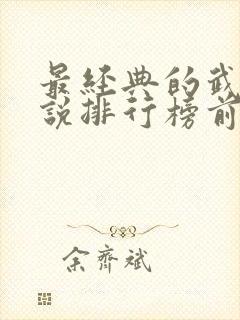 最經典的武
說排行榜前
余齊斌